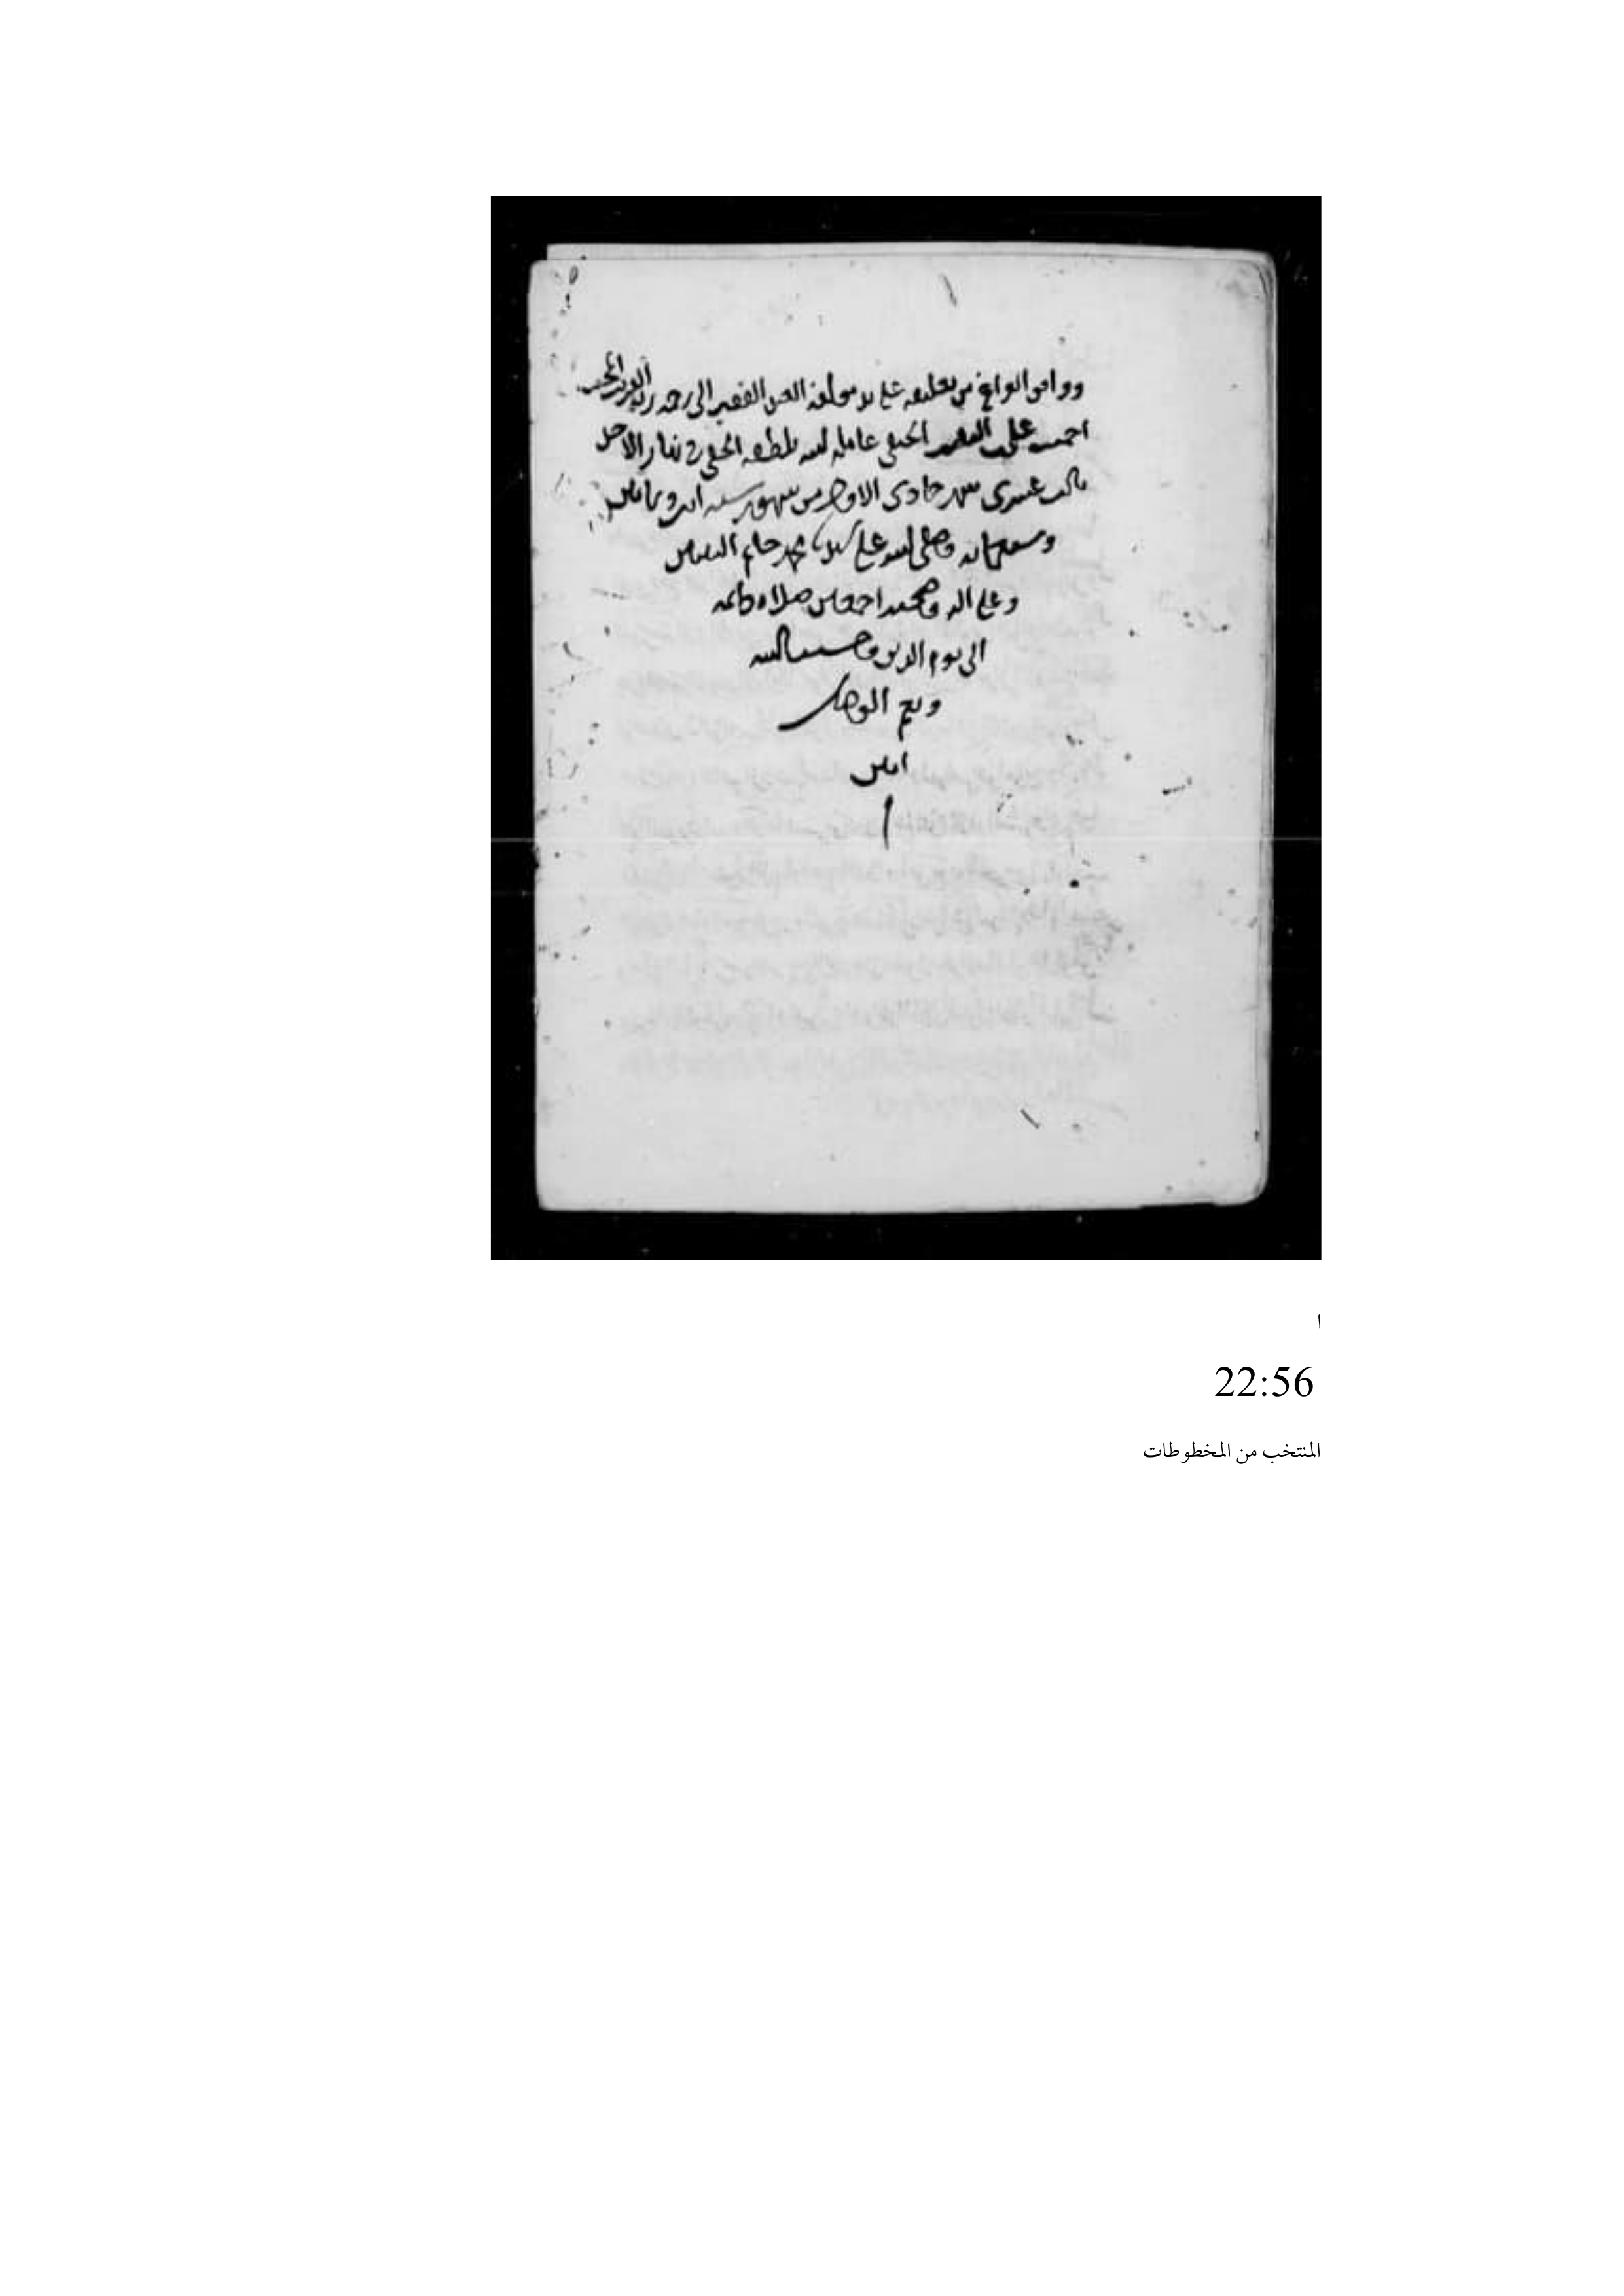 ووافق الفراغ من تعليقه على يد مولفه العبد الفقير الى رحمة ربه
احمد على الحنفى عامله الله بلطفه الخفى فى نهار الاحد
ثالث عشرى شهر جمادى الاولى من شهور سنة اثنين وثمانين
وسبعمائة وصلى الله على سيدنا محمد خاتم النبيين
وعلى اله وصحبه اجمعين صلاة دائمة
الى يوم الدين وحسبنا الله
ونعم الوكيل
امين
ا
22:56
المنتخب من المخطوطات